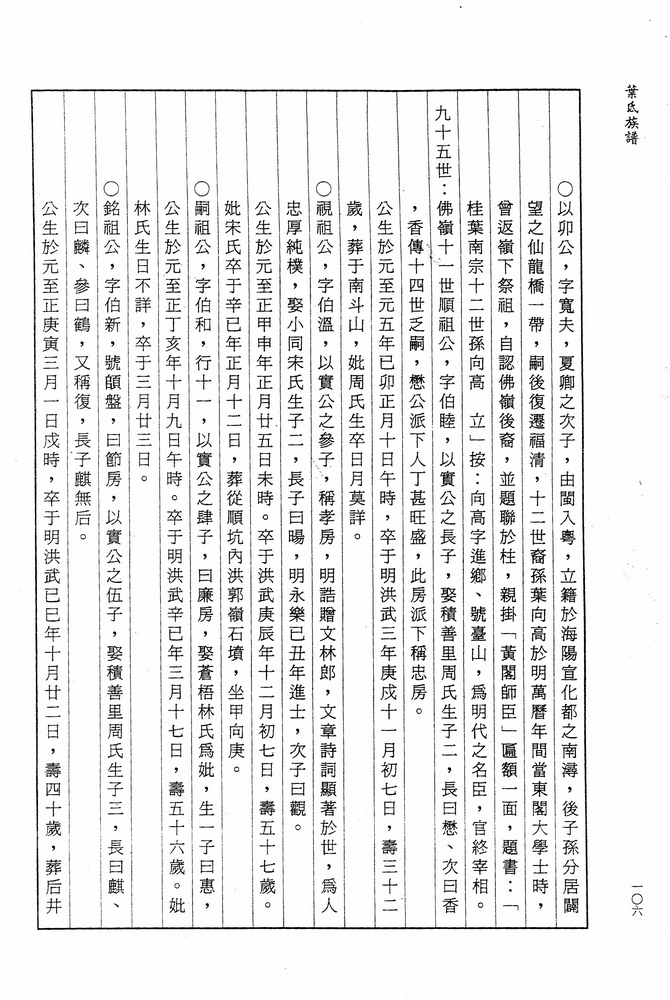 葉氏族譜
一○六
○以卯公，字寬夫，夏卿之次子，由閩入粵，立籍於海陽宣化都之南潯，後子孫分居闢
望之仙龍橋一帶，嗣後復遷福清，十二世裔孫葉向高於明萬曆年間當東閣大學士時，
曾返嶺下祭祖，自認佛嶺後裔，並題聯於柱，親掛「黃閣師臣」匾額一面，題書：「
桂葉南宗十二世孫向高　立」按：向高字進鄉、號臺山，爲明代之名臣，官終宰相。
九十五世：佛嶺十一世順祖公，字伯睦，以實公之長子，娶積善里周氏生子二，長曰懋、次曰香
，香傳十四世乏嗣，懋公派下人丁甚旺盛，此房派下稱忠房。
公生於元至元五年已卯正月十日午時，卒于明洪武三年庚戍十一月初七日，壽三十二
歲，葬于南斗山，妣周氏生卒日月莫詳。
○視祖公，字伯溫，以實公之參子，稱孝房，明誥贈文林郎，文章詩詞顯著於世，爲人
忠厚純樸，娶小同宋氏生子二，長子曰暘，明永樂已丑年進士，次子曰觀。
公生於元至正甲申年正月廿五日未時。卒于洪武庚辰年十二月初七日，壽五十七歲。
妣宋氏卒于辛已年正月十二日，葬從順坑內洪郭嶺石墳，坐甲向庚。
○嗣祖公，字伯和，行十一，以實公之肆子，曰廉房，娶蒼梧林氏爲妣，生一子曰惠，
公生於元至正丁亥年十月九日午時。卒于明洪武辛已年三月十七日，壽五十六歲。妣
林氏生日不詳，卒于三月廿三日。
○銘祖公，字伯新，號頧盤，曰節房，以實公之伍子，娶積善里周氏生子三，長曰麒、
次曰麟、參曰鶴，又稱復，長子麒無后。
公生於元至正庚寅三月一日戍時，卒于明洪武已巳年十月廿二日，壽四十歲，葬后井